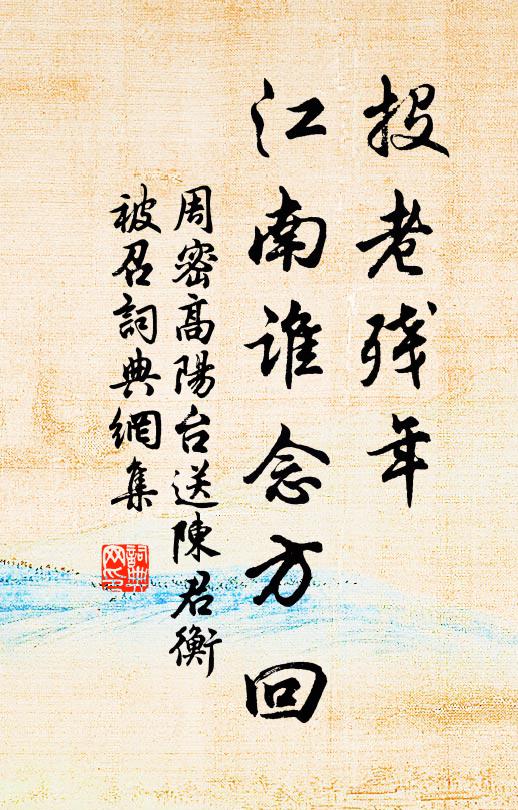 投老残年
江南誰念方回
周密高陽台送陳君衡
被召詞典網集
詞典
网印